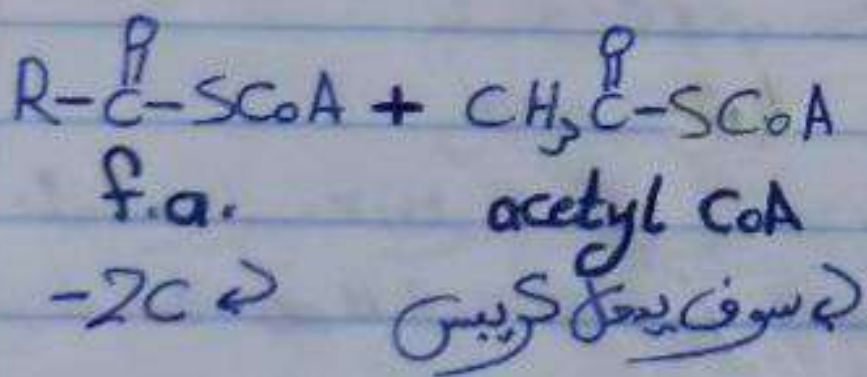 O O
R-C-SCoA + CH3C-SCoA
f.a. acetyl CoA
-2C سوف يدخل كريبس